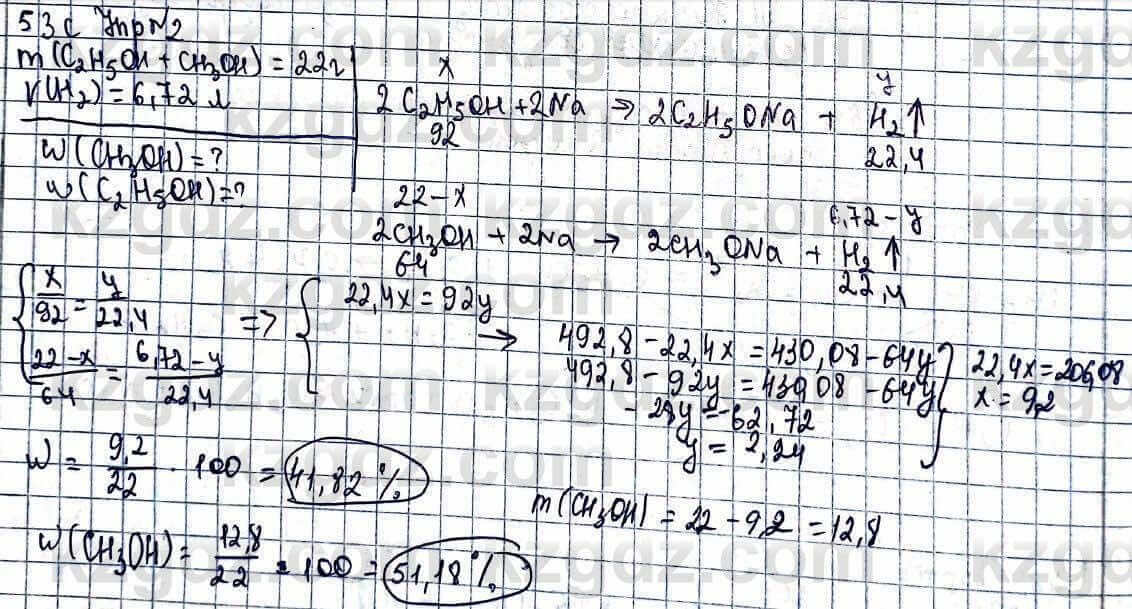 53 с Упр №2
m(C₂H₅OH + CH₃OH) = 22г
V(H₂) = 6,72 л
w(CH₃OH) = ?
w(C₂H₅OH) = ?
x y
2C₂H₅OH + 2Na → 2C₂H₅ONa + H₂↑
92 22,4
22-x 6,72-y
2CH₃OH + 2Na → 2CH₃ONa + H₂↑
64 22,4
{ x/92 = y/22,4
(22-x)/64 = (6,72-y)/22,4
=> { 22,4x = 92y
→ 492,8 - 22,4x = 430,08 - 64y
492,8 - 92y = 430,08 - 64y
- 28y = -62,72
y = 2,24
} 22,4x = 206,08
x = 9,2
W = 9,2/22 · 100 = 41,82%
m(CH₃OH) = 22 - 9,2 = 12,8
W(CH₃OH) = 12,8/22 · 100 = 51,18%
kzgdz.com